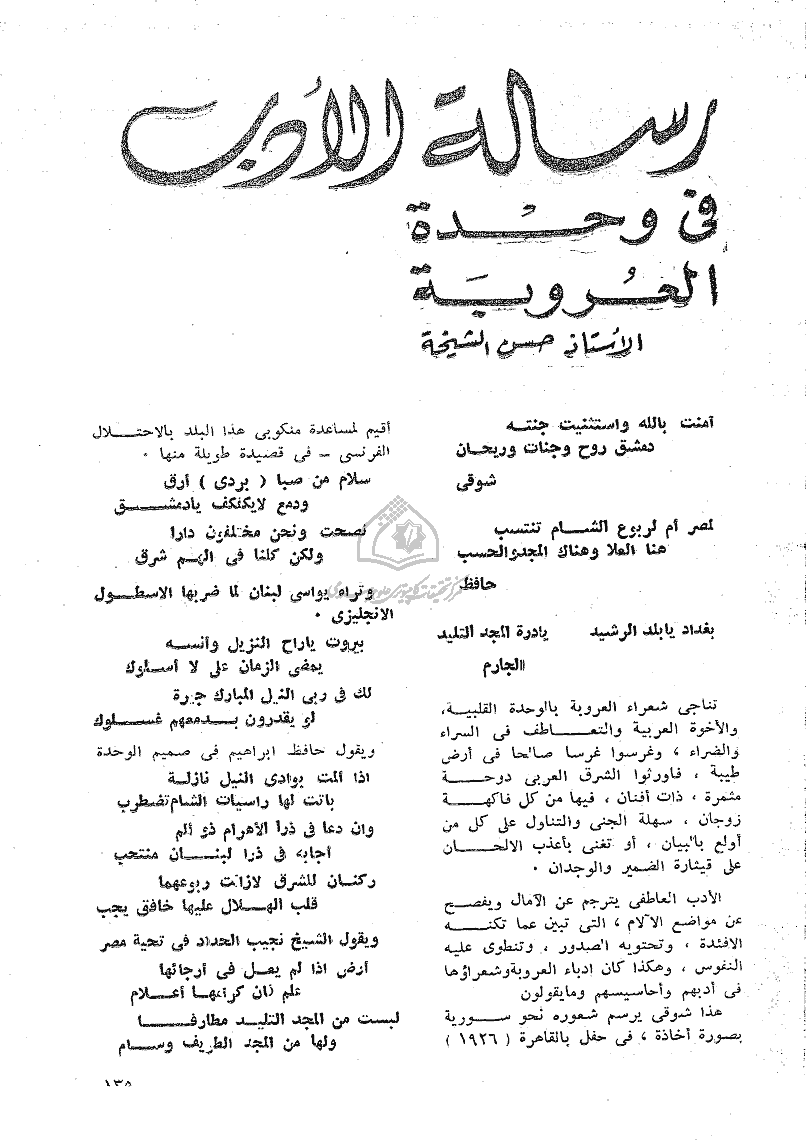 رسالة الأدب
فى وحدة
العروبة
الأستاذ حسن الشيخة
آمنت بالله واستثنيت جنته
دمشق روح وجنات وريحان
شوقى
لمصر أم لربوع الشام تنتسب
هنا العلا وهناك المجد والحسب
حافظ
بغداد يابلد الرشيد يادرة المجد التليد
الجارم
تناجى شعراء العروبة بالوحدة القلبية،
والأخوة العربية والتعاطف فى السراء
والضراء ، وغرسوا غرسا صالحا فى أرض
طيبة ، فاورثوا الشرق العربى دوحة
مثمرة ، ذات أفنان ، فيها من كل فاكهة
زوجان ، سهلة الجنى والتناول على كل من
أولع بالبيان ، أو تغنى بأعذب الالحان
على قيثارة الضمير والوجدان .
الأدب العاطفى يترجم عن الآمال ويفصح
عن مواضع الآلام ، التى تبين عما تكنه
الافئدة ، وتحتويه الصدور ، وتنطوى عليه
النفوس ، وهكذا كان ادباء العروبة وشعراؤها
فى أدبهم وأحاسيسهم ومايقولون
هذا شوقى يرسم شعوره نحو سورية
بصورة أخاذة ، فى حفل بالقاهرة ( ١٩٢٦ )
أقيم لمساعدة منكوبى هذا البلد بالاحتلال
الفرنسى - فى قصيدة طويلة منها .
سلام من صبا ( بردى ) أرق
ودمع لايكفكف يادمشق
نصحت ونحن مختلفون دارا
ولكن كلنا فى الهم شرق
وتراه يواسى لبنان لما ضربها الاسطول
الانجليزى .
بيروت ياراح النزيل وأنسه
يمضى الزمان على لا أسلوك
لك فى ربى النيل المبارك جيرة
لو يقدرون بدمعهم غسلوك
ويقول حافظ ابراهيم فى صميم الوحدة
اذا ألمت بوادى النيل نازلة
باتت لها راسيات الشام تضطرب
وان دعا فى ذرا الأهرام ذو ألم
أجابه فى ذرا لبنان منتحب
ركنان للشرق لازالت ربوعهما
قلب الهلال عليها خافق يجب
ويقول الشيخ نجيب الحداد فى تحية مصر
أرض اذا لم يعل فى أرجائها
علم فان كرامها أعلام
لبست من المجد التليد مطارفا
ولها من المجد الطريف وسام
١٣٨